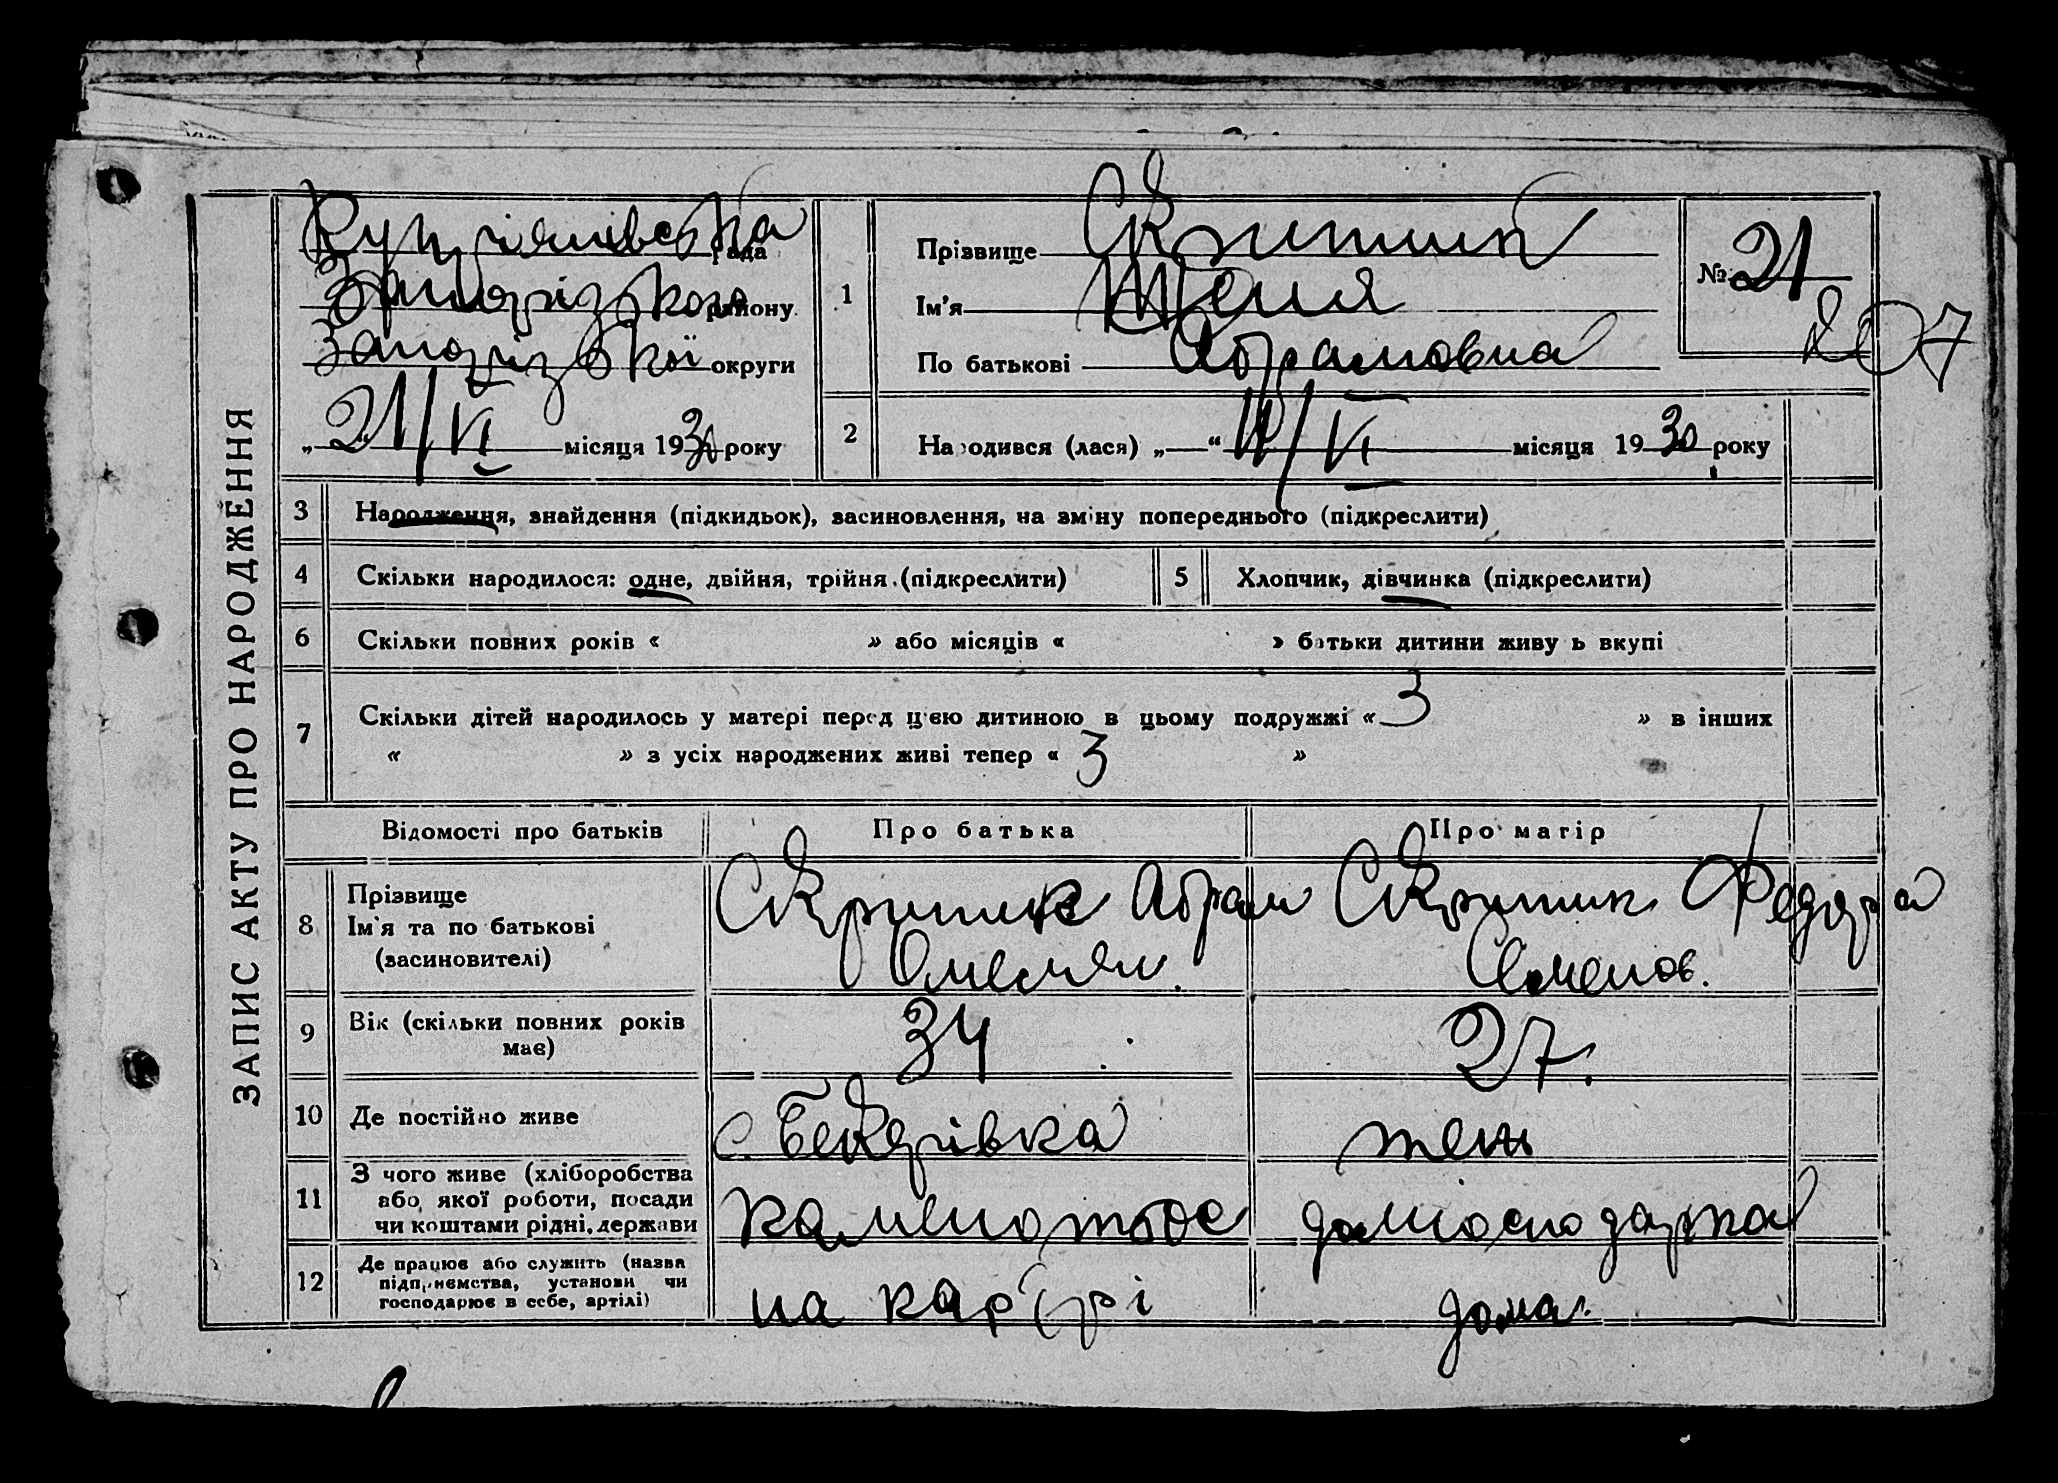 ЗАПИС АКТУ ПРО НАРОДЖЕННЯ
Купріянівська рада
Запорізького району
Запорізької округи
„ 21/VI місяця 1930 року
1
Прізвище Скрипник
Ім'я Женя
По батькові Абрамовна
№ 21
207
2
Народився (лася) „ “ 11/VI місяця 1930 року
3 Народження, знайдення (підкидьок), засиновлення, на зміну попереднього (підкреслити)
4 Скільки народилося: одне, двійня, трійня (підкреслити)
5 Хлопчик, дівчинка (підкреслити)
6 Скільки повних років « » або місяців « » батьки дитини живуть вкупі
7 Скільки дітей народилось у матері перед цією дитиною в цьому подружжі « 3 » в інших
« » з усіх народжених живі тепер « 3 »
Відомості про батьків
Про батька
Про матір
8 Прізвище
Ім'я та по батькові
(засиновителі)
Скрипник Абрам
Омелян.
Скрипник Федора
Семенов.
9 Вік (скільки повних років
має)
34
27.
10 Де постійно живе
с.
11 З чого живе (хліборобства
або якої роботи, посади
чи коштами рідні, держави
каменотьос
12 Де працює або служить (назва
підприємства, установи чи
господарює в себе, артілі)
на кар'єрі
дома.